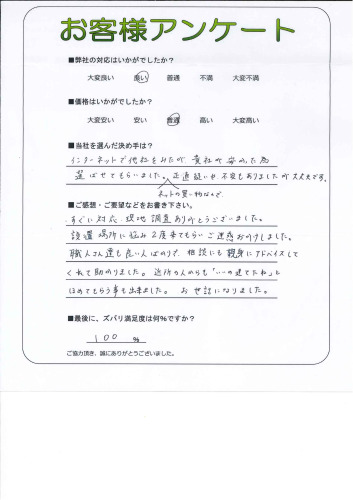 お客様アンケート
■弊社の対応はいかがでしたか?
大変良い 良い 普通 不満 大変不満
■価格はいかがでしたか?
大変安い 安い 普通 高い 大変高い
■当社を選んだ決め手は?
インターネットで他社をみたが 貴社が安かった為
選ばせてもらいました。正直疑いや、不安もありましたが大丈夫です。
ネットの買い物なんで
■ご感想・ご要望などをお書き下さい。
すぐに対応・現地調査ありがとうございました。
設置場所に悩み2度来てもらいご迷惑おかけしました。
職人さん達も良い人ばかりで、相談にも親身にアドバイスして
くれて助かりました。近所の人からも「いいの建てたね」と
ほめてもらう事も出来ました。お世話になりました。
■最後に、ズバリ満足度は何%ですか?
100 %
ご協力頂き、誠にありがとうございました。